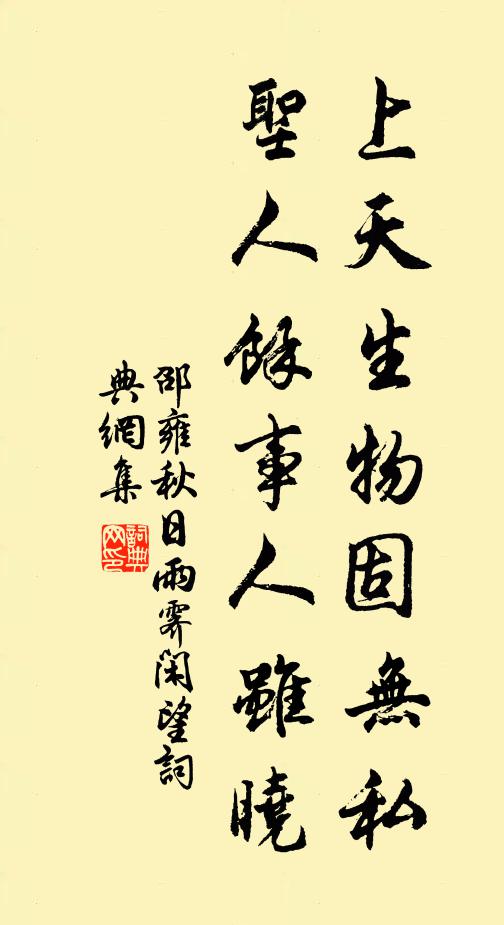 上天生物固無私
聖人餘事人雖曉
邵雍秋日雨霽閑望詞
典網集
詞典
网印